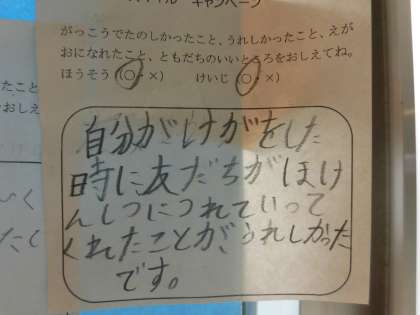 キャンペーン
がっこうでたのしかったこと、うれしかったこと、えが
おになれたこと、ともだちのいいところをおしえてね。
ほうそう(○・×) けいじ(○・×)
自分がけがをした
時に友だちがほけ
んしつにつれていって
くれたことがうれしかった
です。